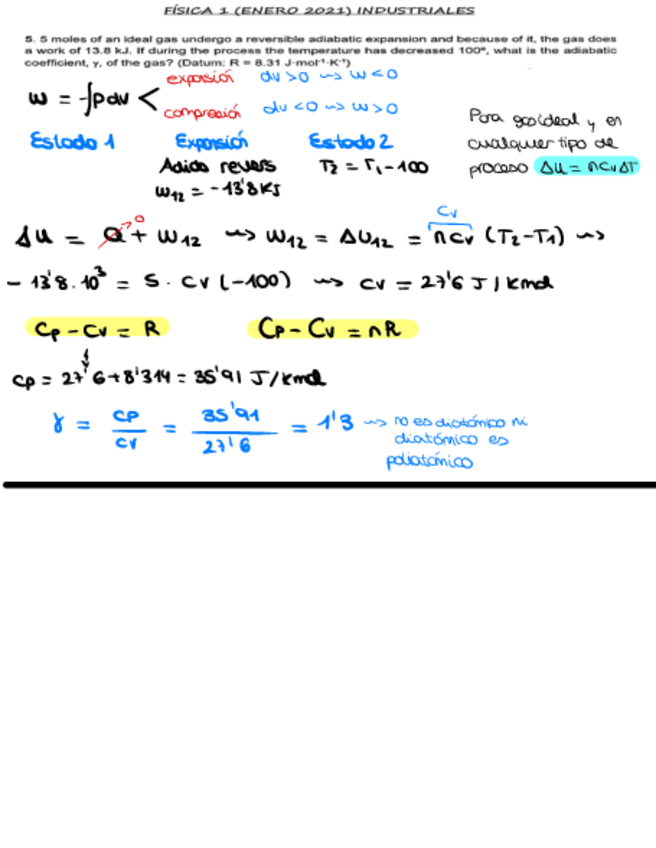 FÍSICA 1 (ENERO 2021) INDUSTRIALES
5. 5 moles of an ideal gas undergo a reversible adiabatic expansion and because of it, the gas does
a work of 13.8 kJ. If during the process the temperature has decreased 100º, what is the adiabatic
coefficient, γ, of the gas? (Datum: R = 8.31 J·mol⁻¹·K⁻¹)
expansión dv > 0 ⇝ w < 0
w = -∫pdv <
compresión dv < 0 ⇝ w > 0
Para gas ideal y en
cualquier tipo de
proceso Δu = ncvΔT
Estado 1 Expansión Estado 2
Adiab revers T2 = T1 - 100
W12 = -13'8 KJ
Cv
Δu = Q→0 + W12 ⇝ W12 = Δu12 = ncv (T2-T1) ⇝
- 13'8·10³ = 5 · cv (-100) ⇝ cv = 27'6 J / Kmol
Cp - Cv = R Cp - Cv = nR
↓
cp = 27'6 + 8'314 = 35'91 J/Kmol
γ = cp/cv = 35'91/27'6 = 1'3 ⇝ no es diatómico ni
diatómico es
poliatómico